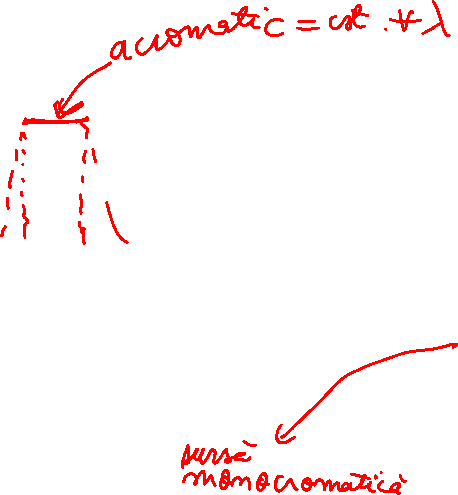 acromatic = cst. ∀ λ
sursă
monocromatică